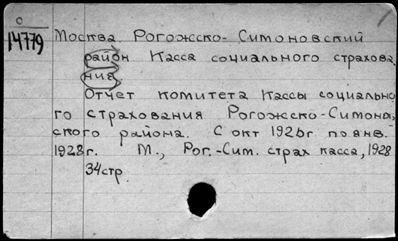 14779
Москва Рогожско-Симоновский
район Касса социального страхова
ния
Отчет комитета Кассы социально
го страхования Рогожско-Симонов
ского района. С окт 1926г по янв.
1928г. М., Рог.-Сим. страх касса, 1928
34стр.